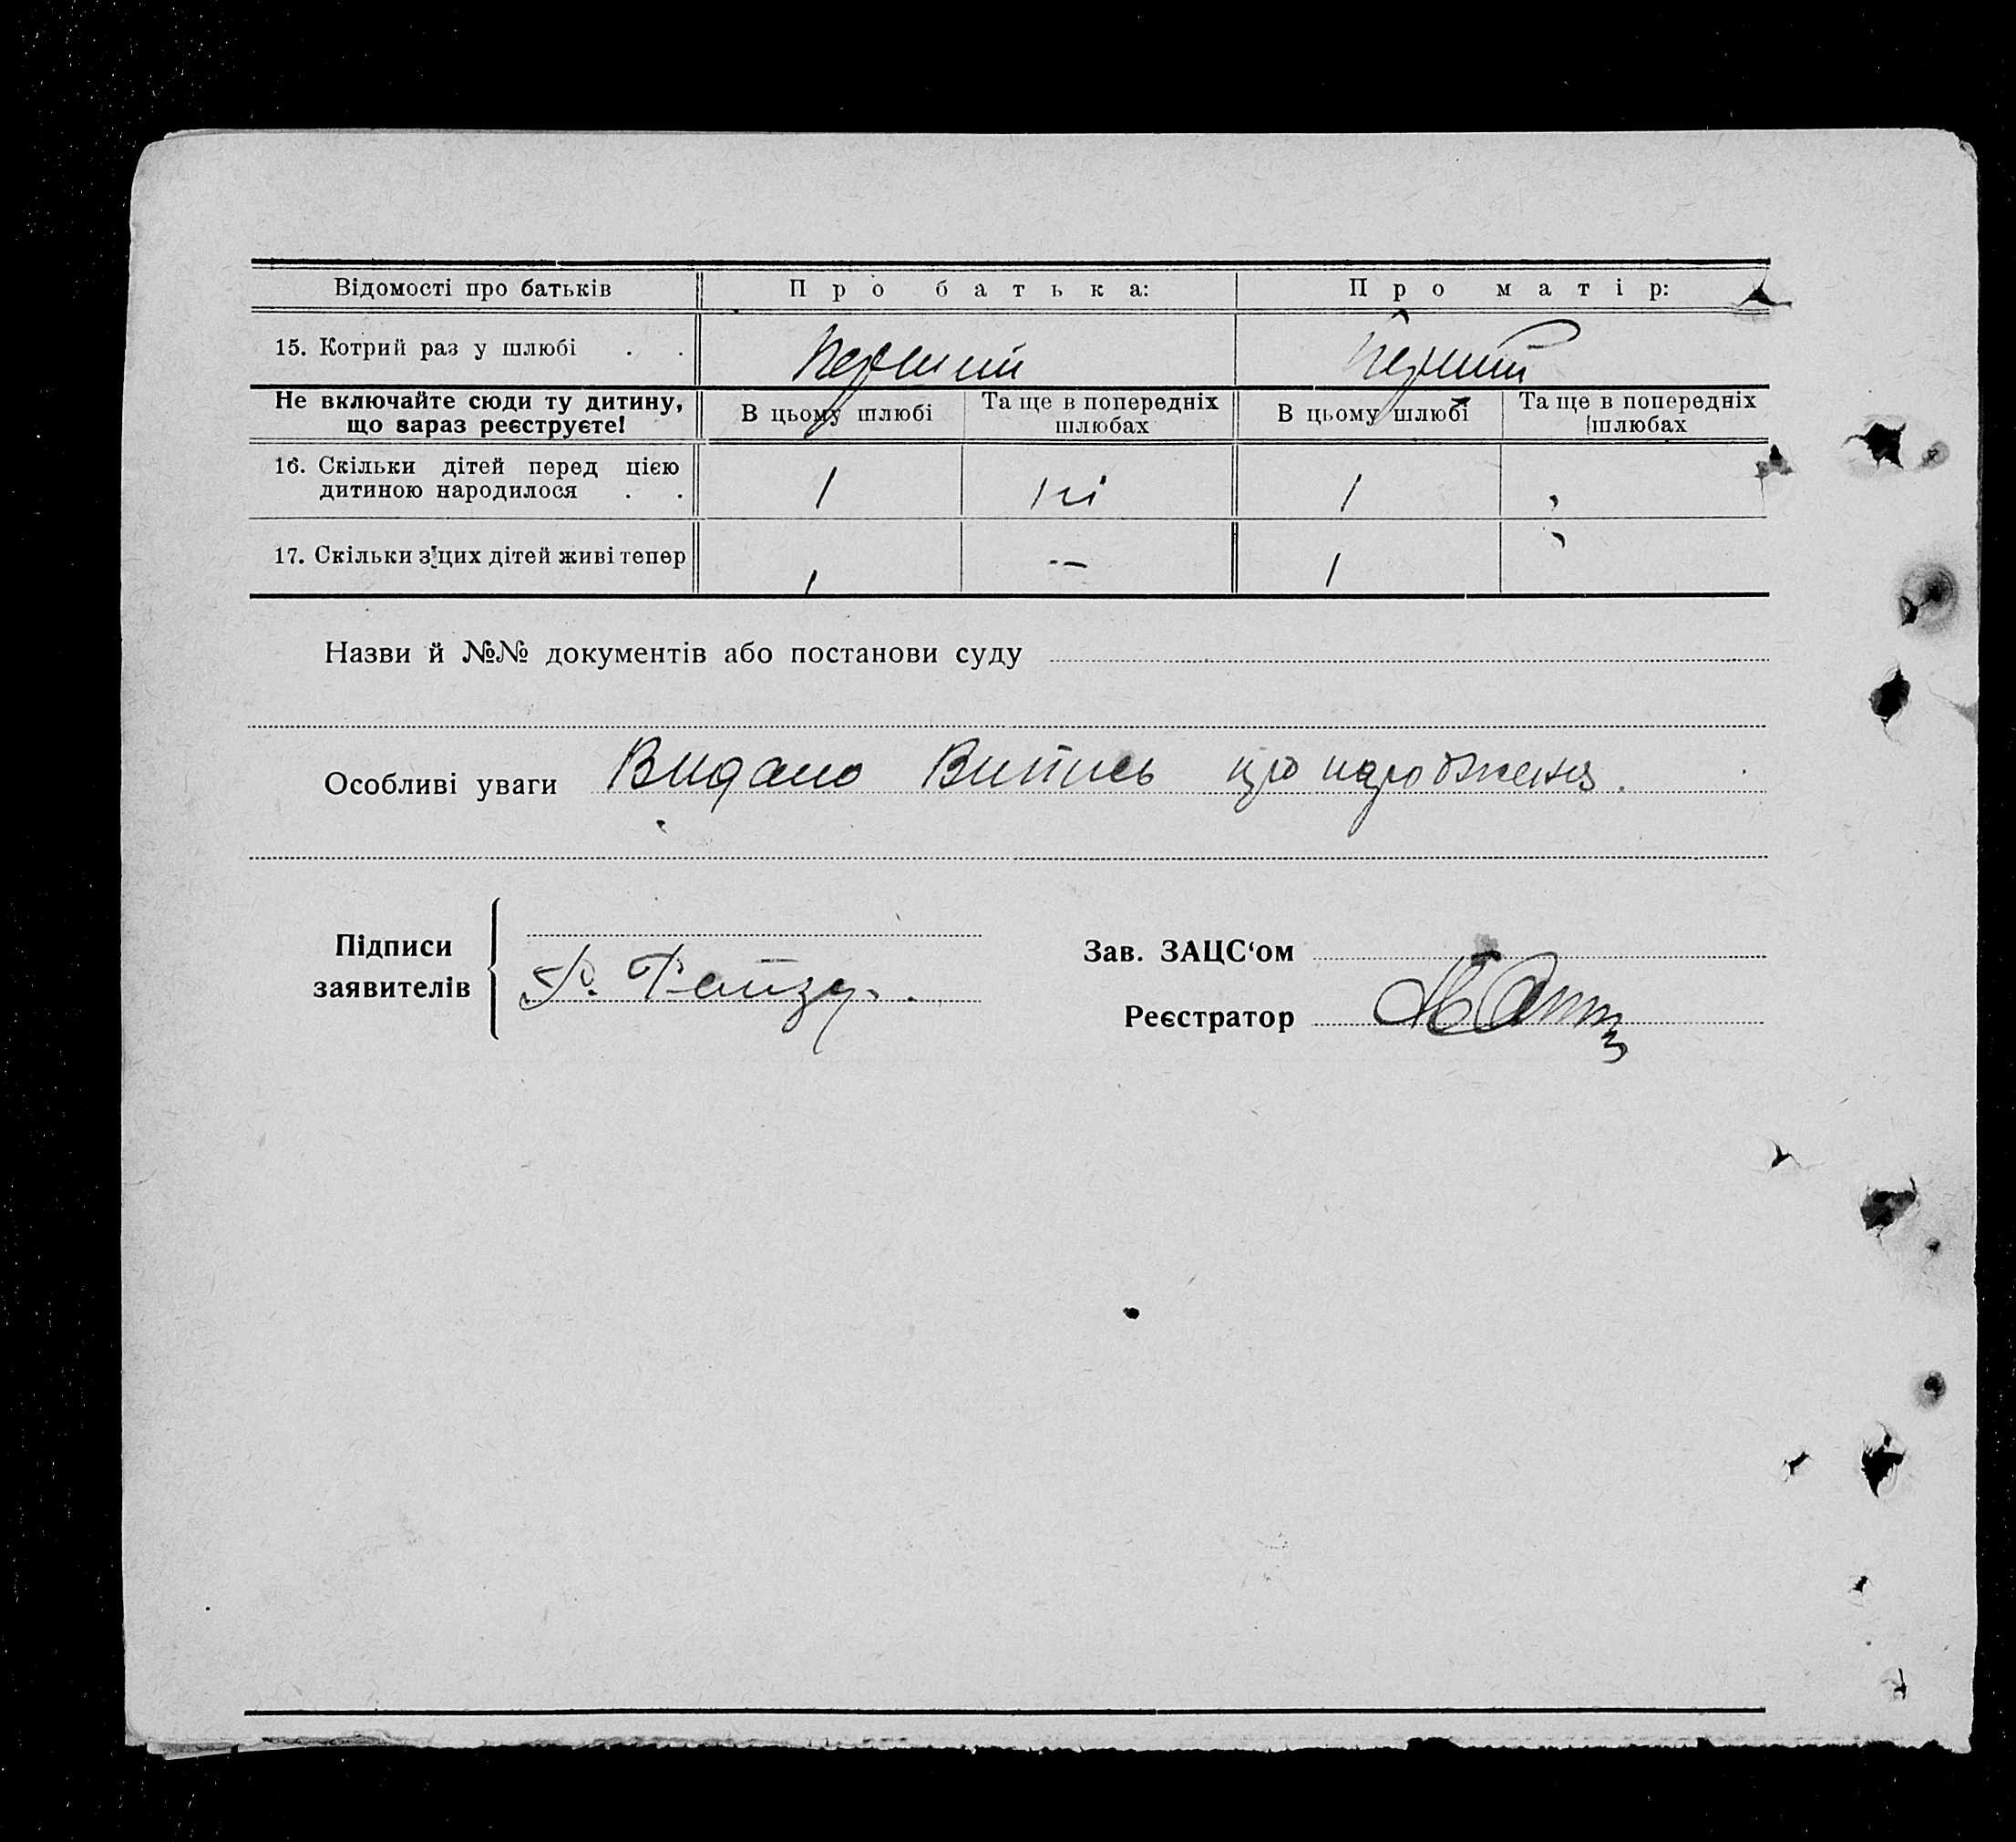 Відомості про батьків Про батька: Про матір:
15. Котрий раз у шлюбі . . Перший Перший
Не включайте сюди ту дитину, що зараз реєструєте! В цьому шлюбі Та ще в попередніх шлюбах В цьому шлюбі Та ще в попередніх шлюбах
16. Скільки дітей перед цією
дитиною народилося . . 1 ні 1
17. Скільки з цих дітей живі тепер 1 — 1
Назви й №№ документів або постанови суду
Особливі уваги Видано Випись про народження.
Підписи
заявителів
Зав. ЗАЦС‘ом
Реєстратор